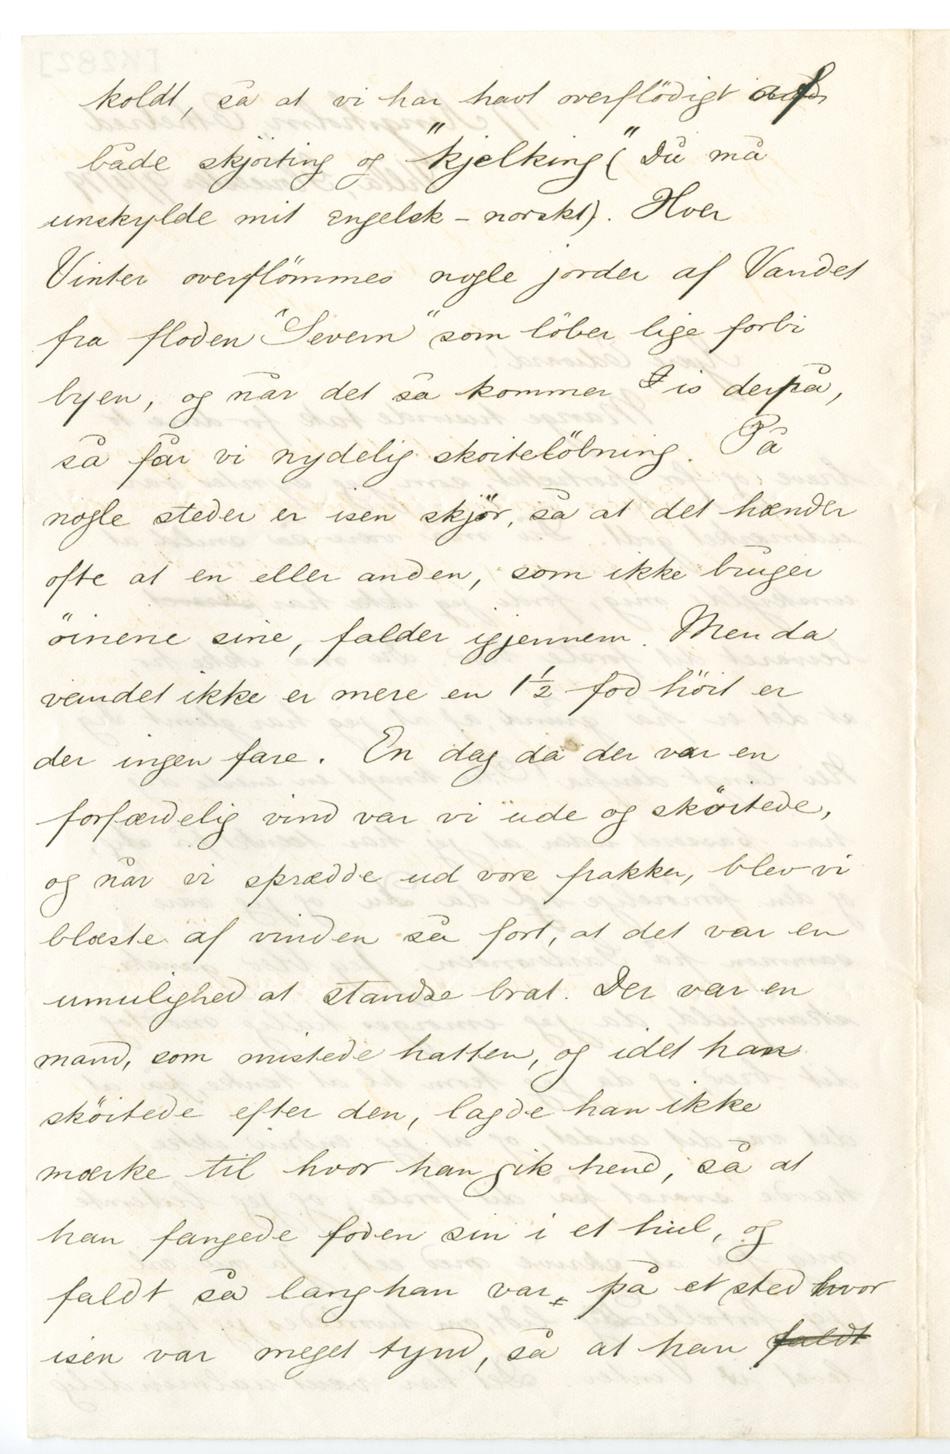 koldt, så at vi har havt overflödigt af
både skjöiting og "kjelking" (Du må
unskylde mit engelsk-norskt). Hver
Vinter overflömmes nogle jorder af Vandet
fra floden "Severn" som löber lige forbi
byen, og når det så kommer is derpå,
så får vi nydelig skoitelöbning. På
nogle steder er isen skjör, så at det hænder
ofte at en eller anden, som ikke bruger
öinene sine, falder igjennem. Men da
vandet ikke er mere en 1½ fod höit er
der ingen fare. En dag da der var en
forfærdelig vind var vi ude og sköitede,
og når vi sprædde ud vore frakker, blev vi
blæste af vinden så fort, at det var en
umulighed at standse brat. Der var en
mand, som mistede hatten, og idet han
sköitede efter den, lagde han ikke
mærke til hvor han gik hend, så at
han fangede foden sin i et hul, og
faldt så lang han var, på et sted hvor
isen var meget tynd, så at han faldt